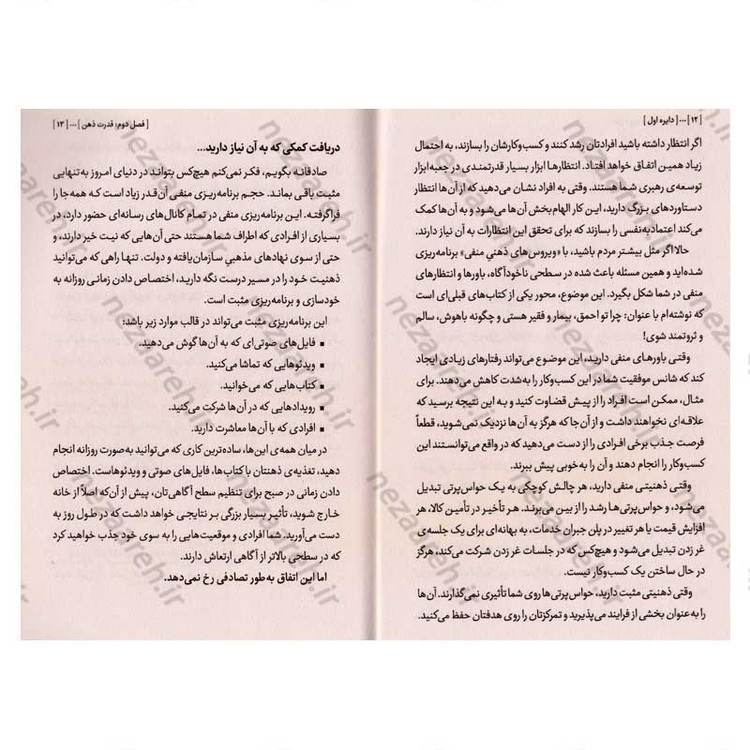 [ ۱۲ ] ... [ دایره اول ]
اگر انتظار داشته باشید افرادتان رشد کنند و کسب‌وکارشان را بسازند، به احتمال
زیاد همین اتفاق خواهد افتاد. انتظارها ابزار بسیار قدرتمندی در جعبه‌ابزار
توسعه‌ی رهبری شما هستند. وقتی به افراد نشان می‌دهید که از آن‌ها انتظار
دستاوردهای بزرگ دارید، این کار الهام‌بخش آن‌ها می‌شود و به آن‌ها کمک
می‌کند اعتمادبه‌نفسی را بسازند که برای تحقق این انتظارات به آن نیاز دارند.
حالا اگر مثل بیشتر مردم باشید، با «ویروس‌های ذهنیِ منفی» برنامه‌ریزی
شده‌اید و همین مسئله باعث شده در سطحی ناخودآگاه، باورها و انتظارهای
منفی در شما شکل بگیرد. این موضوع، محور یکی از کتاب‌های قبلی‌ای است
که نوشته‌ام با عنوان: چرا تو احمق، بیمار و فقیر هستی و چگونه باهوش، سالم
و ثروتمند شوی!
وقتی باورهای منفی دارید، این موضوع می‌تواند رفتارهای زیادی ایجاد
کند که شانس موفقیت شما در این کسب‌وکار را به‌شدت کاهش می‌دهند. برای
مثال، ممکن است افراد را از پیش قضاوت کنید و به این نتیجه برسید که
علاقه‌ای نخواهند داشت و از آن جا که هرگز به آن‌ها نزدیک نمی‌شوید، قطعاً
فرصت جذب برخی افرادی را از دست می‌دهید که در واقع می‌توانستند این
کسب‌وکار را انجام دهند و آن را به خوبی پیش ببرند.
وقتی ذهنیتی منفی دارید، هر چالش کوچکی به یک حواس‌پرتی تبدیل
می‌شود، و حواس‌پرتی‌ها رشد را از بین می‌برند. هر تأخیر در تأمین کالا، هر
افزایش قیمت یا هر تغییر در پلن جبران خدمات، به بهانه‌ای برای یک جلسه‌ی
غر زدن تبدیل می‌شود و هیچ‌کس که در جلسات غر زدن شرکت می‌کند، هرگز
در حال ساختن یک کسب‌وکار نیست.
وقتی ذهنیتی مثبت دارید، حواس‌پرتی‌ها روی شما تأثیری نمی‌گذارند. آن‌ها
را به‌عنوان بخشی از فرایند می‌پذیرید و تمرکزتان را روی هدفتان حفظ می‌کنید.
[ فصل دوم: قدرت ذهن ] ... [ ۱۳ ]
دریافت کمکی که به آن نیاز دارید...
صادقانه بگویم، فکر نمی‌کنم هیچ‌کس بتواند در دنیای امروز به‌تنهایی
مثبت باقی بماند. حجم برنامه‌ریزی منفی آن‌قدر زیاد است که همه جا را
فراگرفته. این برنامه‌ریزی منفی در تمام کانال‌های رسانه‌ای حضور دارد، در
بسیاری از افرادی که اطراف شما هستند حتی آن‌هایی که نیت خیر دارند، و
حتی از سوی نهادهای مذهبیِ سازمان‌یافته و دولت. تنها راهی که می‌توانید
ذهنیت خود را در مسیر درست نگه دارید، اختصاص دادن زمانی روزانه به
خودسازی و برنامه‌ریزی مثبت است.
این برنامه‌ریزی مثبت می‌تواند در قالب موارد زیر باشد:
▪ فایل‌های صوتی‌ای که به آن‌ها گوش می‌دهید.
▪ ویدئوهایی که تماشا می‌کنید.
▪ کتاب‌هایی که می‌خوانید.
▪ رویدادهایی که در آن‌ها شرکت می‌کنید.
▪ افرادی که با آن‌ها معاشرت دارید.
در میان همه‌ی این‌ها، ساده‌ترین کاری که می‌توانید به‌صورت روزانه انجام
دهید، تغذیه‌ی ذهنتان با کتاب‌ها، فایل‌های صوتی و ویدئوهاست. اختصاص
دادن زمانی در صبح برای تنظیم سطح آگاهی‌تان، پیش از آن‌که اصلاً از خانه
خارج شوید، تأثیر بسیار بزرگی بر نتایجی خواهد داشت که در طول روز به
دست می‌آورید. شما افرادی و موقعیت‌هایی را به سوی خود جذب خواهید کرد
که در سطحی بالاتر از آگاهی ارتعاش دارند.
اما این اتفاق به‌طور تصادفی رخ نمی‌دهد.
nezaareh.ir
nezaareh.ir
nezaareh.ir
nezaareh.ir
nezaareh.ir
nezaareh.ir
nezaareh.ir
nezaareh.ir